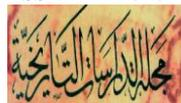 مجلة الدراسات التاريخية